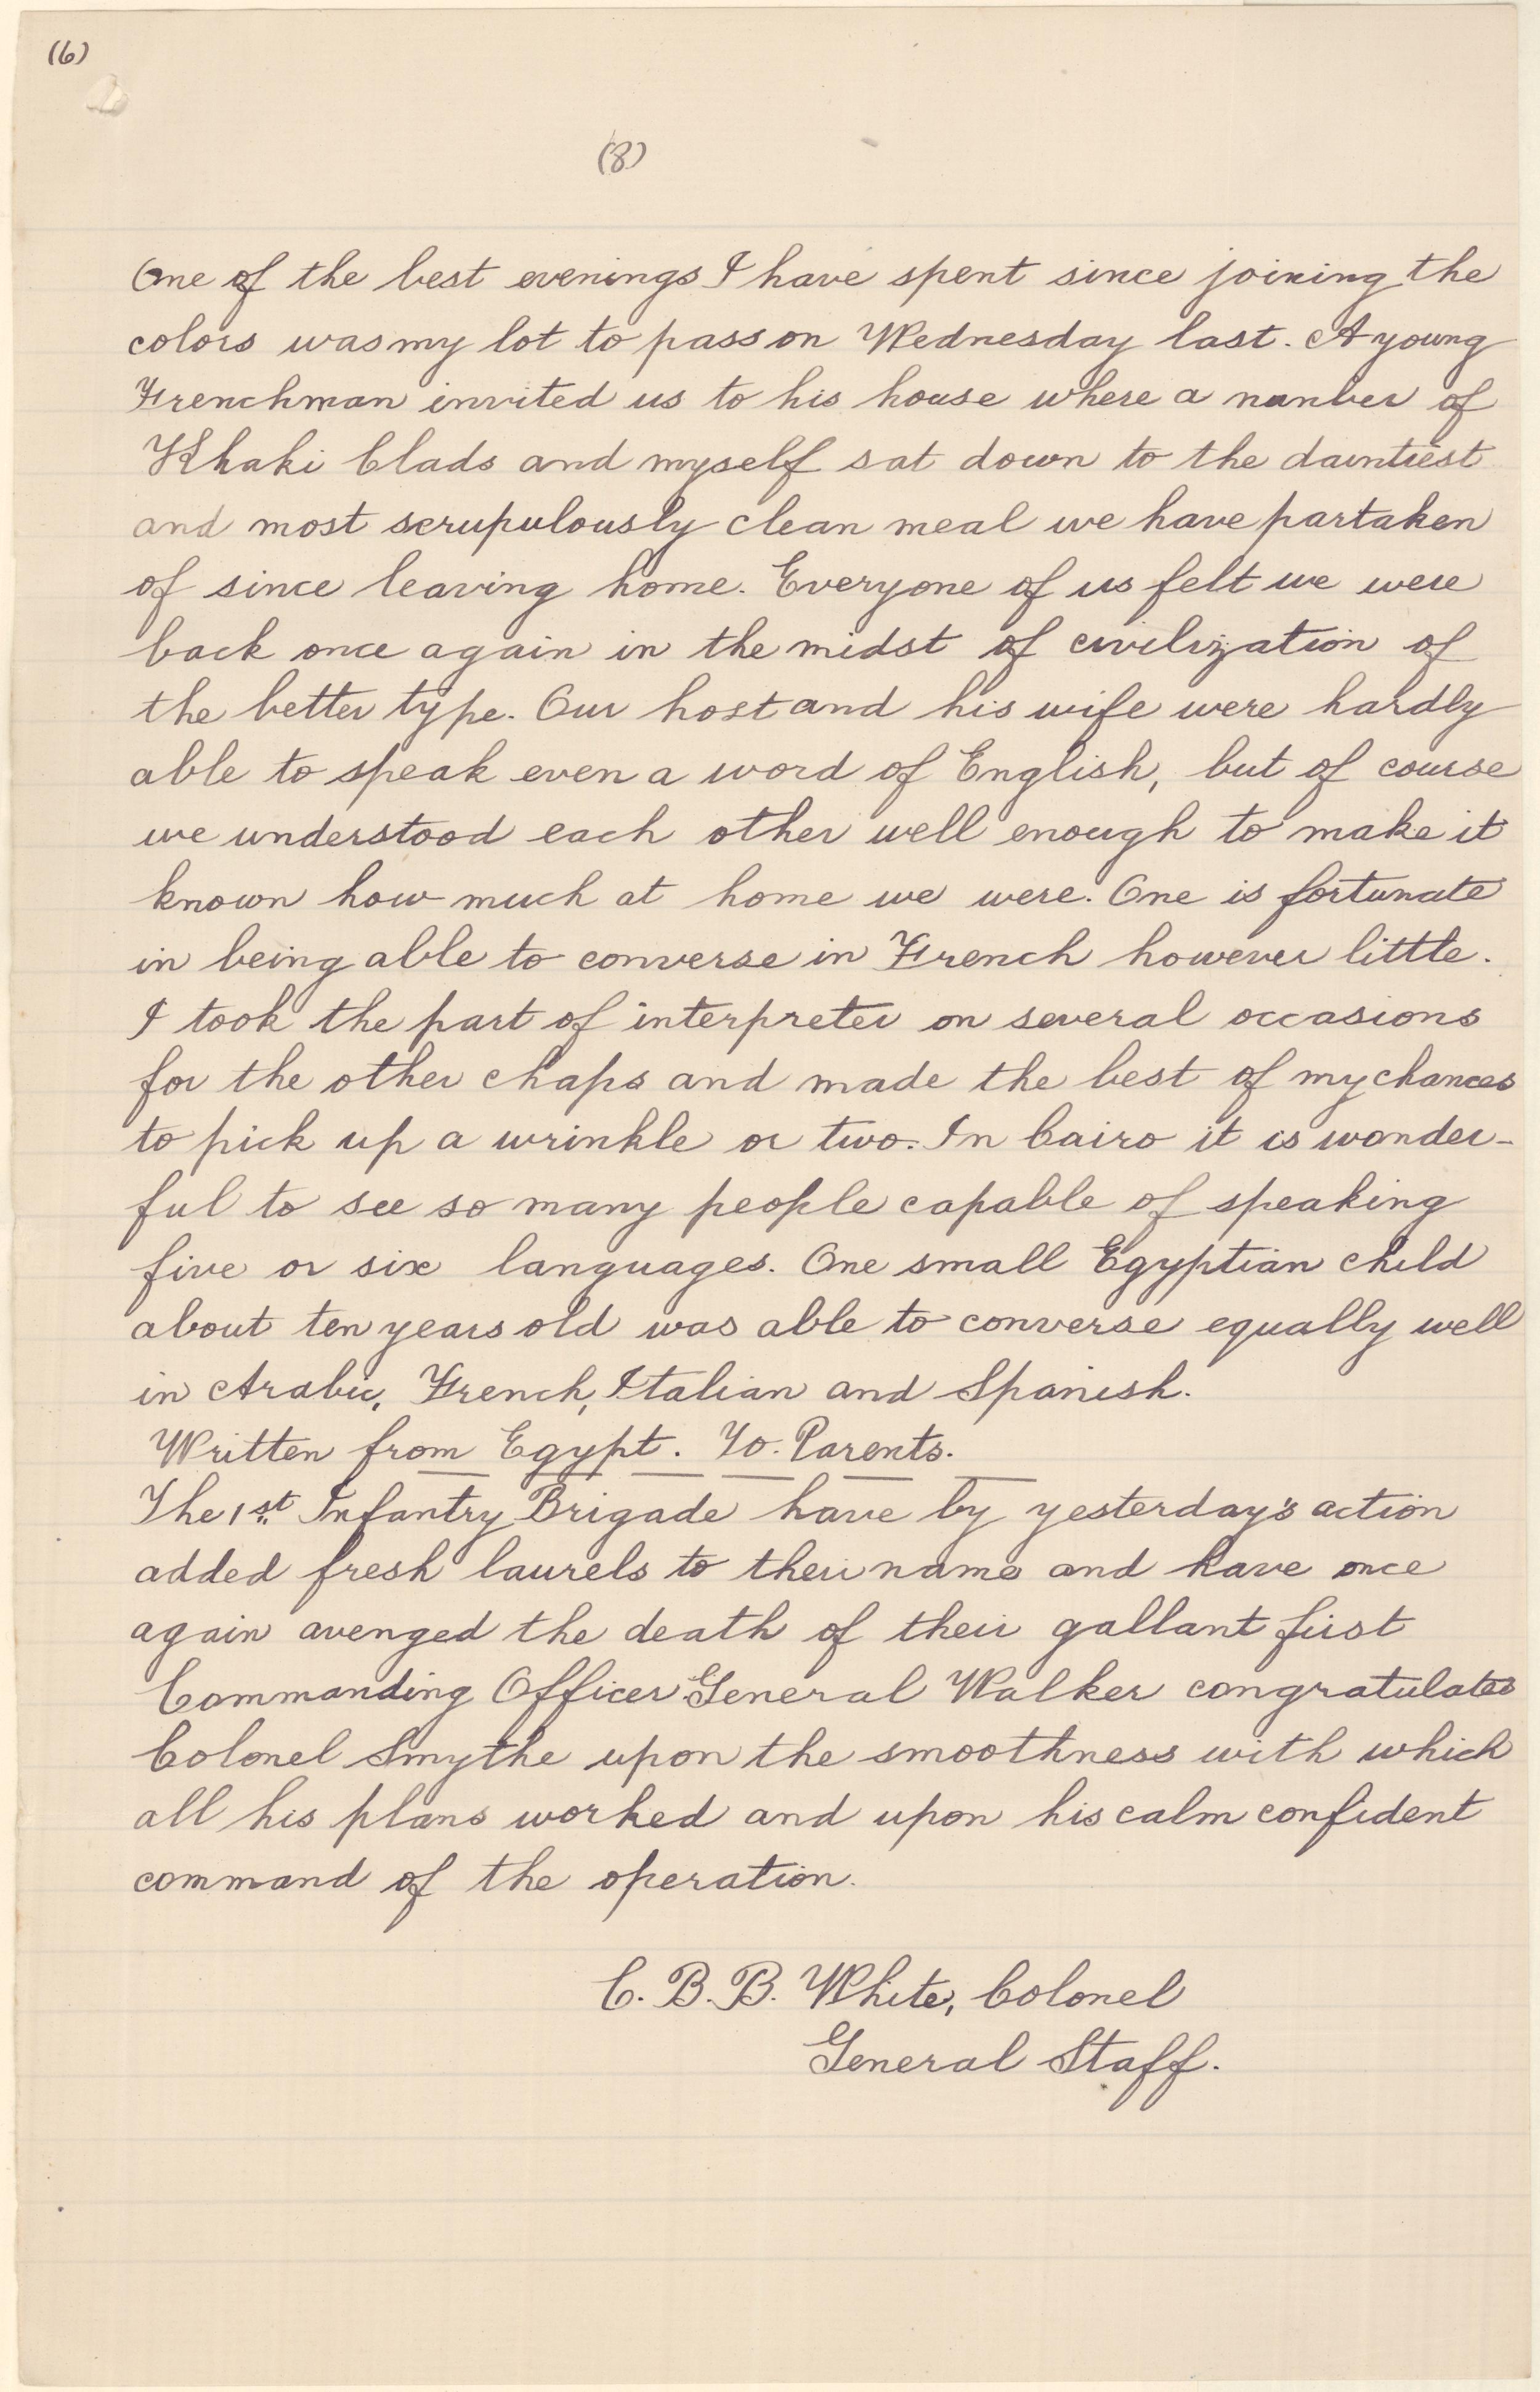 (6)
(8)
One of the best evenings I have spent since joining the
colors was my lot to pass on Wednesday last. A young
Frenchman invited us to his house where a number of
Khaki Clads and myself sat down to the daintiest
and most scrupulously clean meal we have partaken
of since leaving home. Everyone of us felt we were
back once again in the midst of civilization of
the better type. Our host and his wife were hardly
able to speak even a word of English, but of course
we understood each other well enough to make it
known how much at home we were. One is fortunate
in being able to converse in French however little.
I took the part of interpreter on several occasions
for the other chaps and made the best of my chances
to pick up a wrinkle or two. In Cairo it is wonder-
ful to see so many people capable of speaking
five or six languages. One small Egyptian child
about ten years old was able to converse equally well
in Arabic, French, Italian and Spanish.
Written from Egypt. To. Parents.
The 1st Infantry Brigade have by yesterday's action
added fresh laurels to their name and have once
again avenged the death of their gallant first
Commanding Officer General Walker congratulates
Colonel Smythe upon the smoothness with which
all his plans worked and upon his calm confident
command of the operation.
C. B. B. White, Colonel
General Staff.